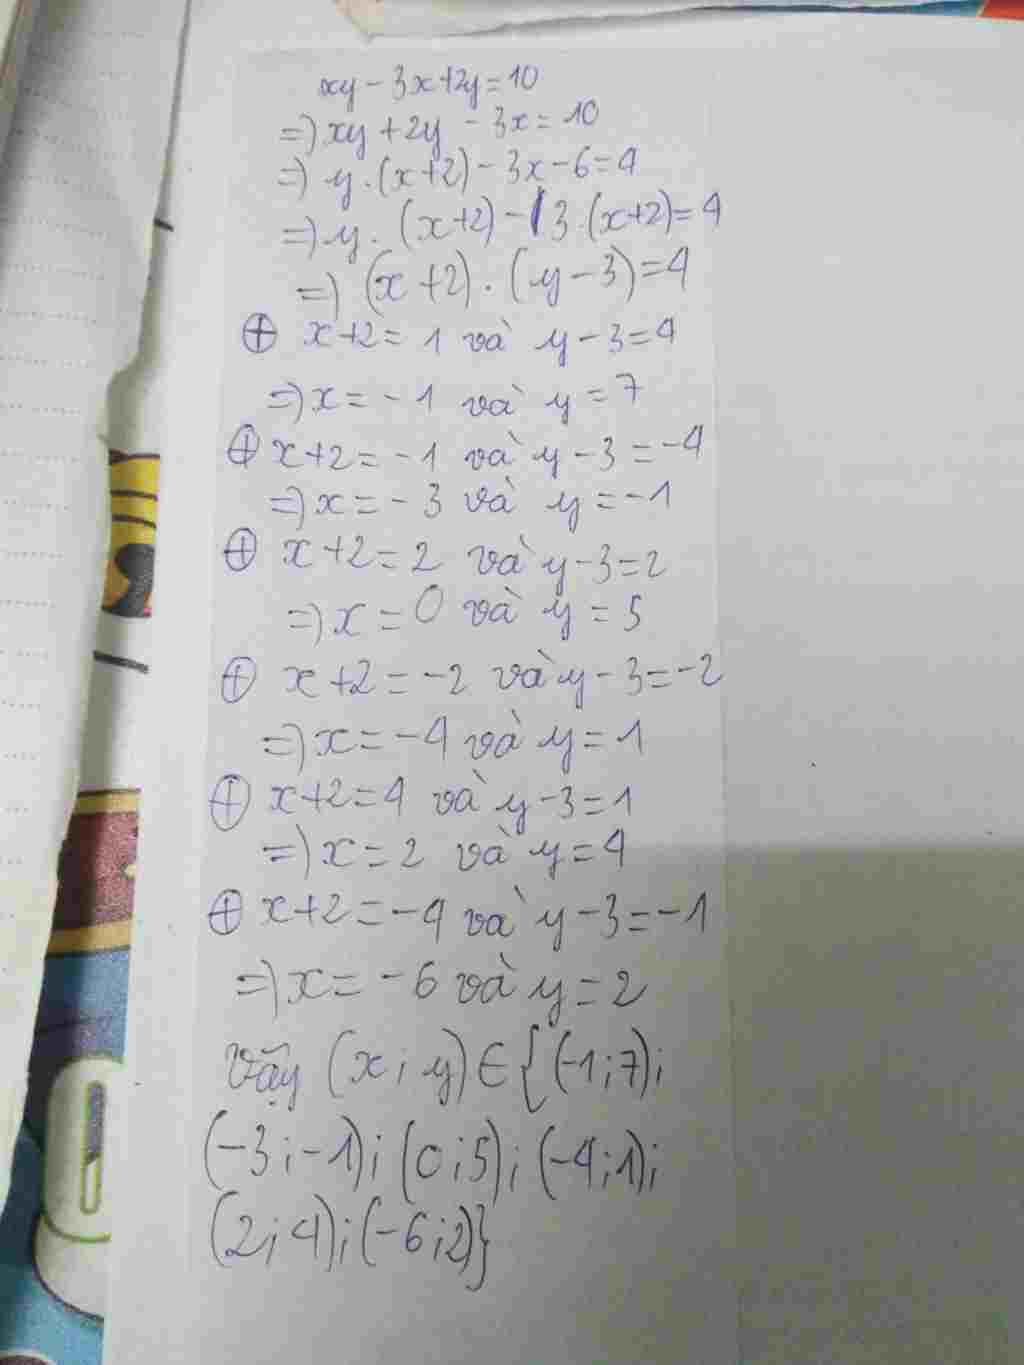 xy - 3x + 2y = 10
=) xy + 2y - 3x = 10
=) y . (x+2) - 3x - 6 = 4
=) y . (x+2) - 3 . (x+2) = 4
=) (x+2) . (y-3) = 4
⊕ x+2 = 1 và y-3 = 4
=) x = -1 và y = 7
⊕ x+2 = -1 và y-3 = -4
=) x = -3 và y = -1
⊕ x+2 = 2 và y-3 = 2
=) x = 0 và y = 5
⊕ x+2 = -2 và y-3 = -2
=) x = -4 và y = 1
⊕ x+2 = 4 và y-3 = 1
=) x = 2 và y = 4
⊕ x+2 = -4 và y-3 = -1
=) x = -6 và y = 2
Vậy (x ; y) ∈ {(-1 ; 7) ;
(-3 ; -1) ; (0 ; 5) ; (-4 ; 1) ;
(2 ; 4) ; (-6 ; 2)}